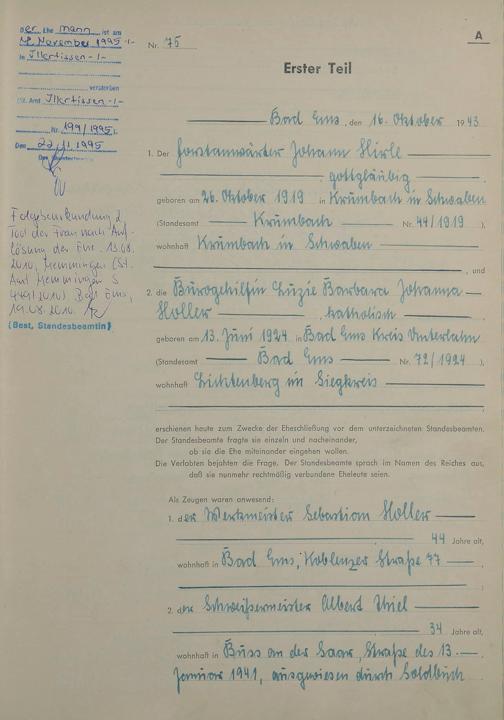 Der Ehe mann ist am
12. November 1995 -/-
in Illertissen -/-
verstorben
(St. Amt Illertissen -/-
Nr. 199/1995).
Den 22.11.1995
Der Standesbeamte
Folgebeurkundung 2
Tod der Frau nach Auf-
lösung der Ehe: 13.08.
2010, Memmingen (St.
Amt Memmingen S
449/2010) Bad Ems,
19.08.2010.
(Best, Standesbeamtin)
A
Nr. 75
Erster Teil
Bad Ems, den 16. Oktober 1943
1. Der Forstanwärter Johann Hirle
gottgläubig
geboren am 26. Oktober 1919 in Krumbach in Schwaben
(Standesamt Krumbach Nr. 44/1919),
wohnhaft Krumbach in Schwaben
, und
2. die Bürogehilfin Luzie Barbara Johanna
Holler katholisch
geboren am 13. Juni 1924 in Bad Ems Kreis Unterlahn
(Standesamt Bad Ems Nr. 72/1924),
wohnhaft Lichtenberg im Siegkreis
erschienen heute zum Zwecke der Eheschließung vor dem unterzeichneten Standesbeamten.
Der Standesbeamte fragte sie einzeln und nacheinander,
ob sie die Ehe miteinander eingehen wollen.
Die Verlobten bejahten die Frage. Der Standesbeamte sprach im Namen des Reiches aus,
daß sie nunmehr rechtmäßig verbundene Eheleute seien.
Als Zeugen waren anwesend:
1. der Werkmeister Sebastian Holler
44 Jahre alt,
wohnhaft in Bad Ems, Koblenzer Straße 77
;
2. der Schweißermeister Albert Thiel
34 Jahre alt,
wohnhaft in Buss an der Saar, Straße des 13.
Januar 1941, ausgewiesen durch Soldbuch